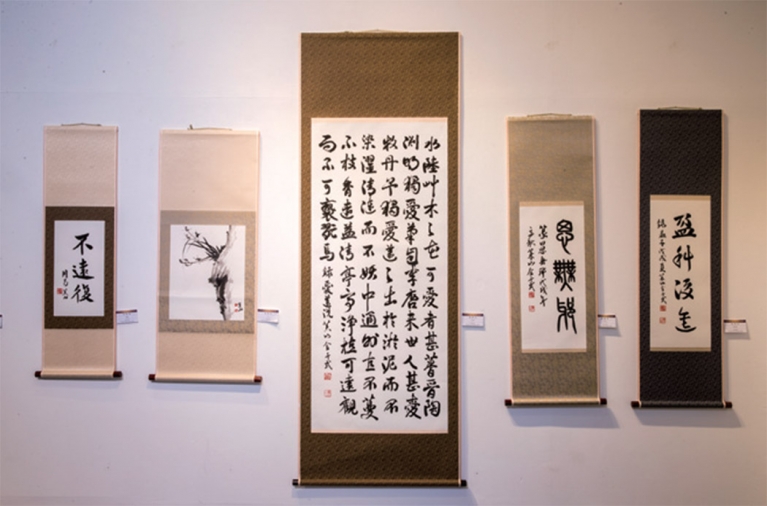 不遠復
水陸艸木之花可愛者甚蕃晉陶
渊明獨愛菊自李唐來世人甚愛
牧丹予獨愛蓮之出於淤泥而不
染濯清漣而不妖中通外直不蔓
不枝香遠益清亭亭淨植可遠觀
而不可褻翫焉 錄愛蓮說
思無邪
盈科後進